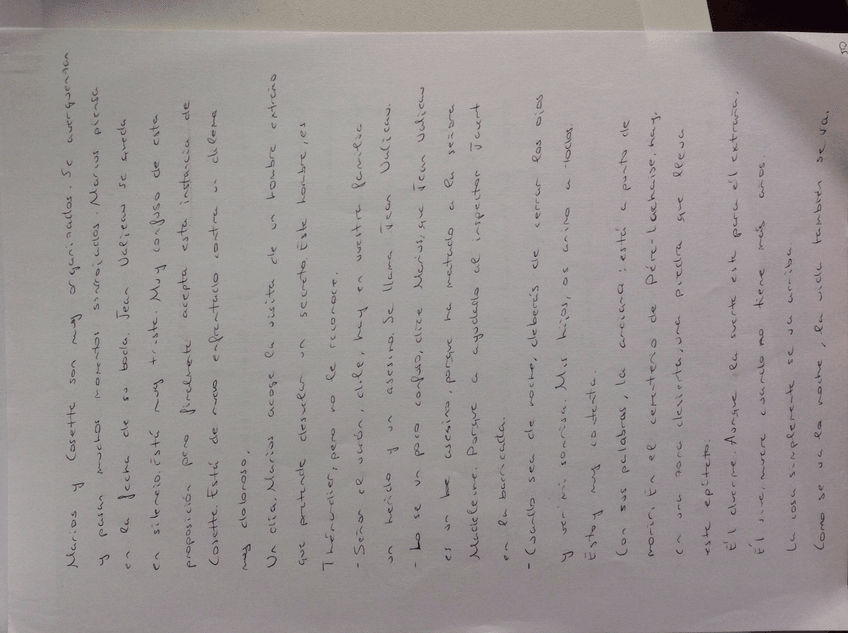 Marius y Cosette son muy organizados. Se averguentan
y pasan muchos momentos sonrojados. Marius piensa
en la fecha de su boda. Jean Valjean se queda
en silencio. Está muy triste. Muy confuso de esta
proposición pero finalmente acepta esta instancia de
Cosette. Está de nuevo enfrentado contra un dilema
muy doloroso.
Un día, Marius acoge la visita de un hombre extraño
que pretende desvelar un secreto. Este hombre, es
Thénardier, pero no le reconoce.
- Señor el varón, dile, hay en vuestra familia
un herido y un asesino. Se llama Jean Valjean.
- Lo se un poco confuso, dice Marius, que Jean Valjean
es un asesino, porque ha matado a la señora
Madeleine. Porque a ayudado al inspector Javert
en la barricada.
- Cuando sea de noche, deberás de cerrar los ojos
y ver mi sonrisa. Mis hijos, os animo a todos.
Estoy muy contenta.
Con sus palabras, la anciana: está a punto de
morir. En el cementerio de Père-Lachaise, hay,
en una zona desierta, una piedra que lleva
este epíteto:
Él duerme. Aunque la suerte este para él extraña,
Él vive, muere cuando no tiene más años.
La cosa simplemente se va arriba
Como se va la noche, la vida también se va.
50